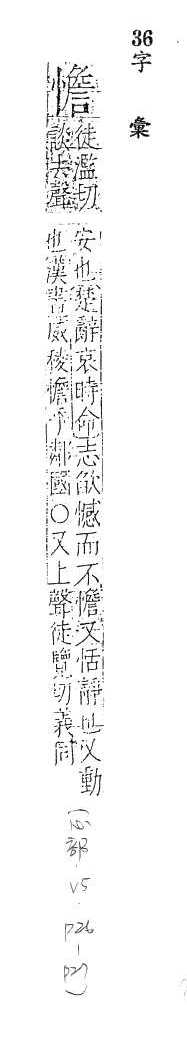 36字 彙
憺
徒濫切
談去聲
安也楚辭哀時命志欲憾而不憺又恬靜也又動
也漢書威稜憺乎鄰國○又上聲徒覽切義同
(心部 V5 - P26 - P27)